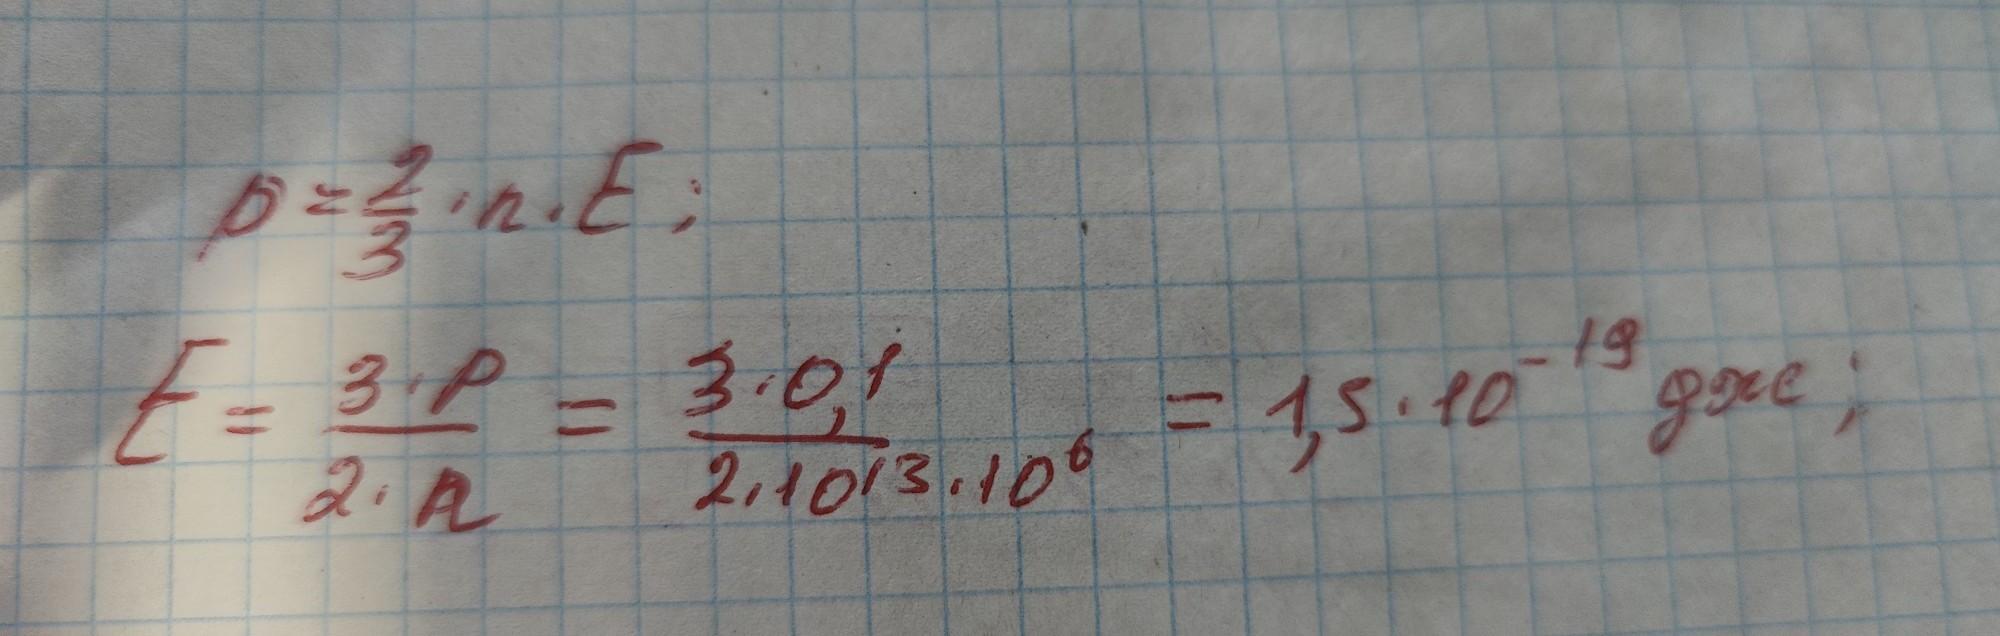 p = 2/3 · n · E ;
E = 3·P / 2·n = 3·0,1 / 2·10¹³·10⁶ = 1,5·10⁻¹⁹ дже ;